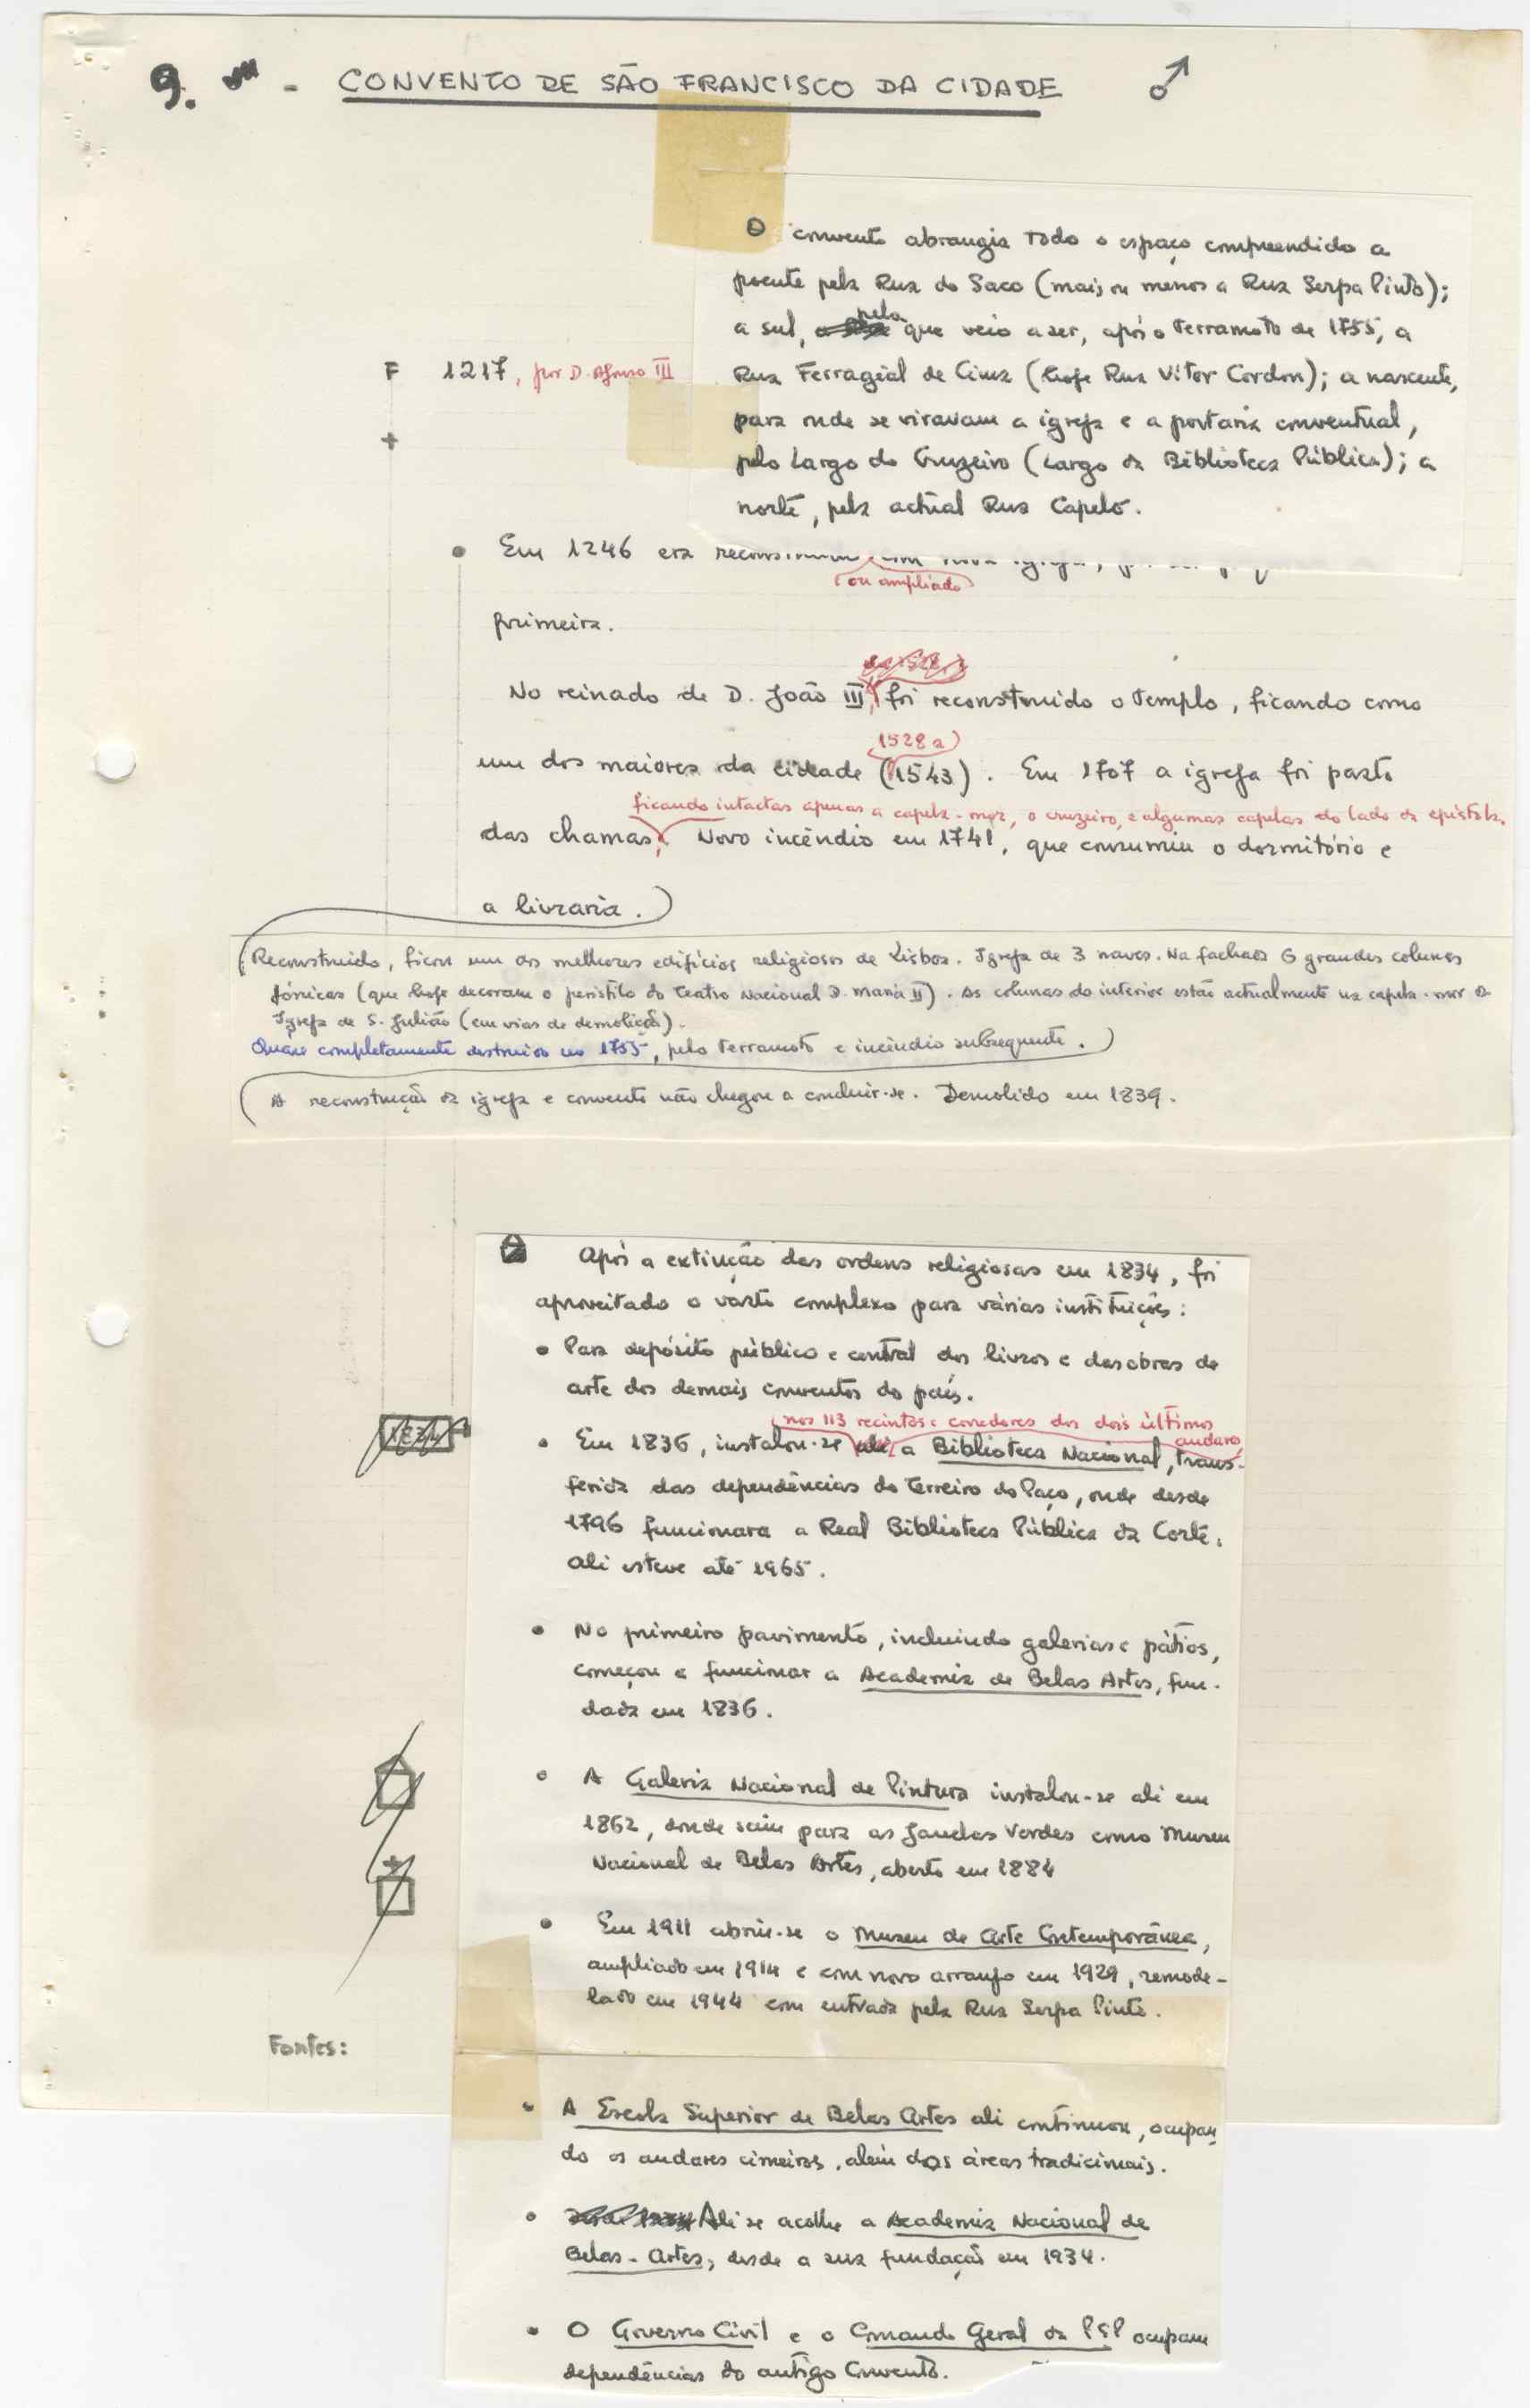 9. - CONVENTO DE SÃO FRANCISCO DA CIDADE ♂
O convento abrangia todo o espaço compreendido a
poente pela Rua do Saco (mais ou menos a Rua Serpa Pinto);
a sul, pelo que veio a ser, após o terramoto de 1755, a
F 1217, por D. Afonso III
Rua Ferragial de Cima (hoje Rua Vitor Cordon); a nascente,
para onde se viravam a igreja e a portaria conventual,
+
pelo Largo do Cruzeiro (Largo da Biblioteca Pública); a
norte, pela actual Rua Capelo.
Em 1246 era
(ou ampliado)
primeira.
No reinado de D. João III, foi reconstruido o templo, ficando como
1528 a
um dos maiores da cidade (1543). Em 1707 a igreja foi pasto
ficando intactas apenas a capela-mor, o cruzeiro, e algumas capelas do lado da epístola.
das chamas, Novo incêndio em 1741, que consumiu o dormitório e
a livraria.)
(Reconstruido, ficou um dos melhores edifícios religiosos de Lisboa. Igreja de 3 naves. Na fachada 6 grandes colunas
jónicas (que hoje decoram o peristilo do Teatro Nacional D. Maria II). As colunas do interior estão actualmente na capela-mor da
Igreja de S. Julião (em vias de demolição).
Quase completamente destruido em 1755, pelo terramoto e incêndio subsequente.)
(A reconstrução da igreja e convento não chegou a concluir-se. Demolido em 1839.
Após a extinção das ordens religiosas em 1834, foi
aproveitado o vasto complexo para várias instituições:
• Para depósito público e central dos livros e das obras de
arte dos demais conventos do país.
(nos 113 recintos e corredores dos dois últimos
andares)
• Em 1836, instalou-se a Biblioteca Nacional, trans-
ferida das dependências do Terreiro do Paço, onde desde
1796 funcionara a Real Biblioteca Pública da Corte.
Ali esteve até 1965.
• No primeiro pavimento, incluindo galerias e pátios,
começou a funcionar a Academia de Belas Artes, fun-
dada em 1836.
• A Galeria Nacional de Pintura instalou-se ali em
1862, donde saiu para as Janelas Verdes como Museu
Nacional de Belas Artes, aberto em 1884
• Em 1911 abriu-se o Museu de Arte Contemporânea,
ampliado em 1914 e com novo arranjo em 1929, remode-
lado em 1944 com entrada pela Rua Serpa Pinto.
Fontes:
• A Escola Superior de Belas Artes ali continuou, ocupan
do os andares cimeiros, além das áreas tradicionais.
• Ali se acolhe a Academia Nacional de
Belas-Artes, desde a sua fundação em 1934.
• O Governo Civil e o Comando Geral da PSP ocupam
dependências do antigo Convento.